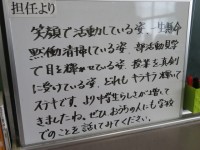 担任より
笑顔で活動している姿、一生懸命
黙働清掃している姿、部活動見学
で目を輝かせている姿、授業を真剣
に受けている姿、どれもキラキラ輝いて
ステキです。より中学生らしさが増して
きましたね。ぜひ、おうちの人にも学校
でのことを話してみてください。